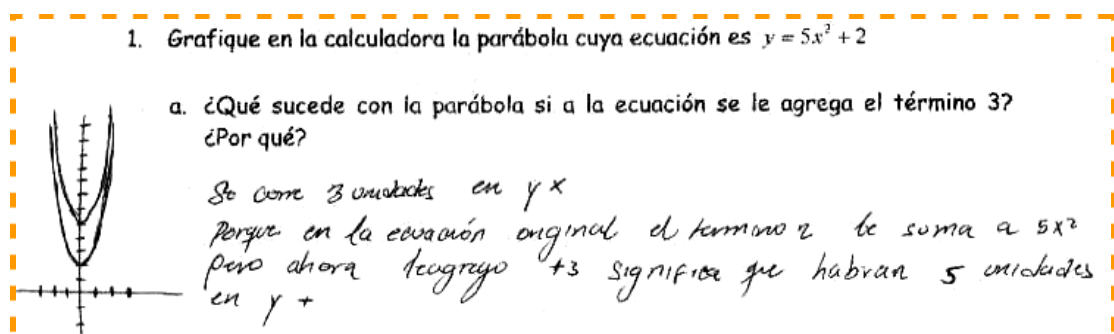 1. Grafique en la calculadora la parábola cuya ecuación es y = 5x² + 2
a. ¿Qué sucede con la parábola si a la ecuación se le agrega el término 3?
¿Por qué?
Se corre 3 unidades en y
Porque en la ecuación original el termino 2 le suma a 5x²
pero ahora +3 significa que habran 5 unidades
en y +